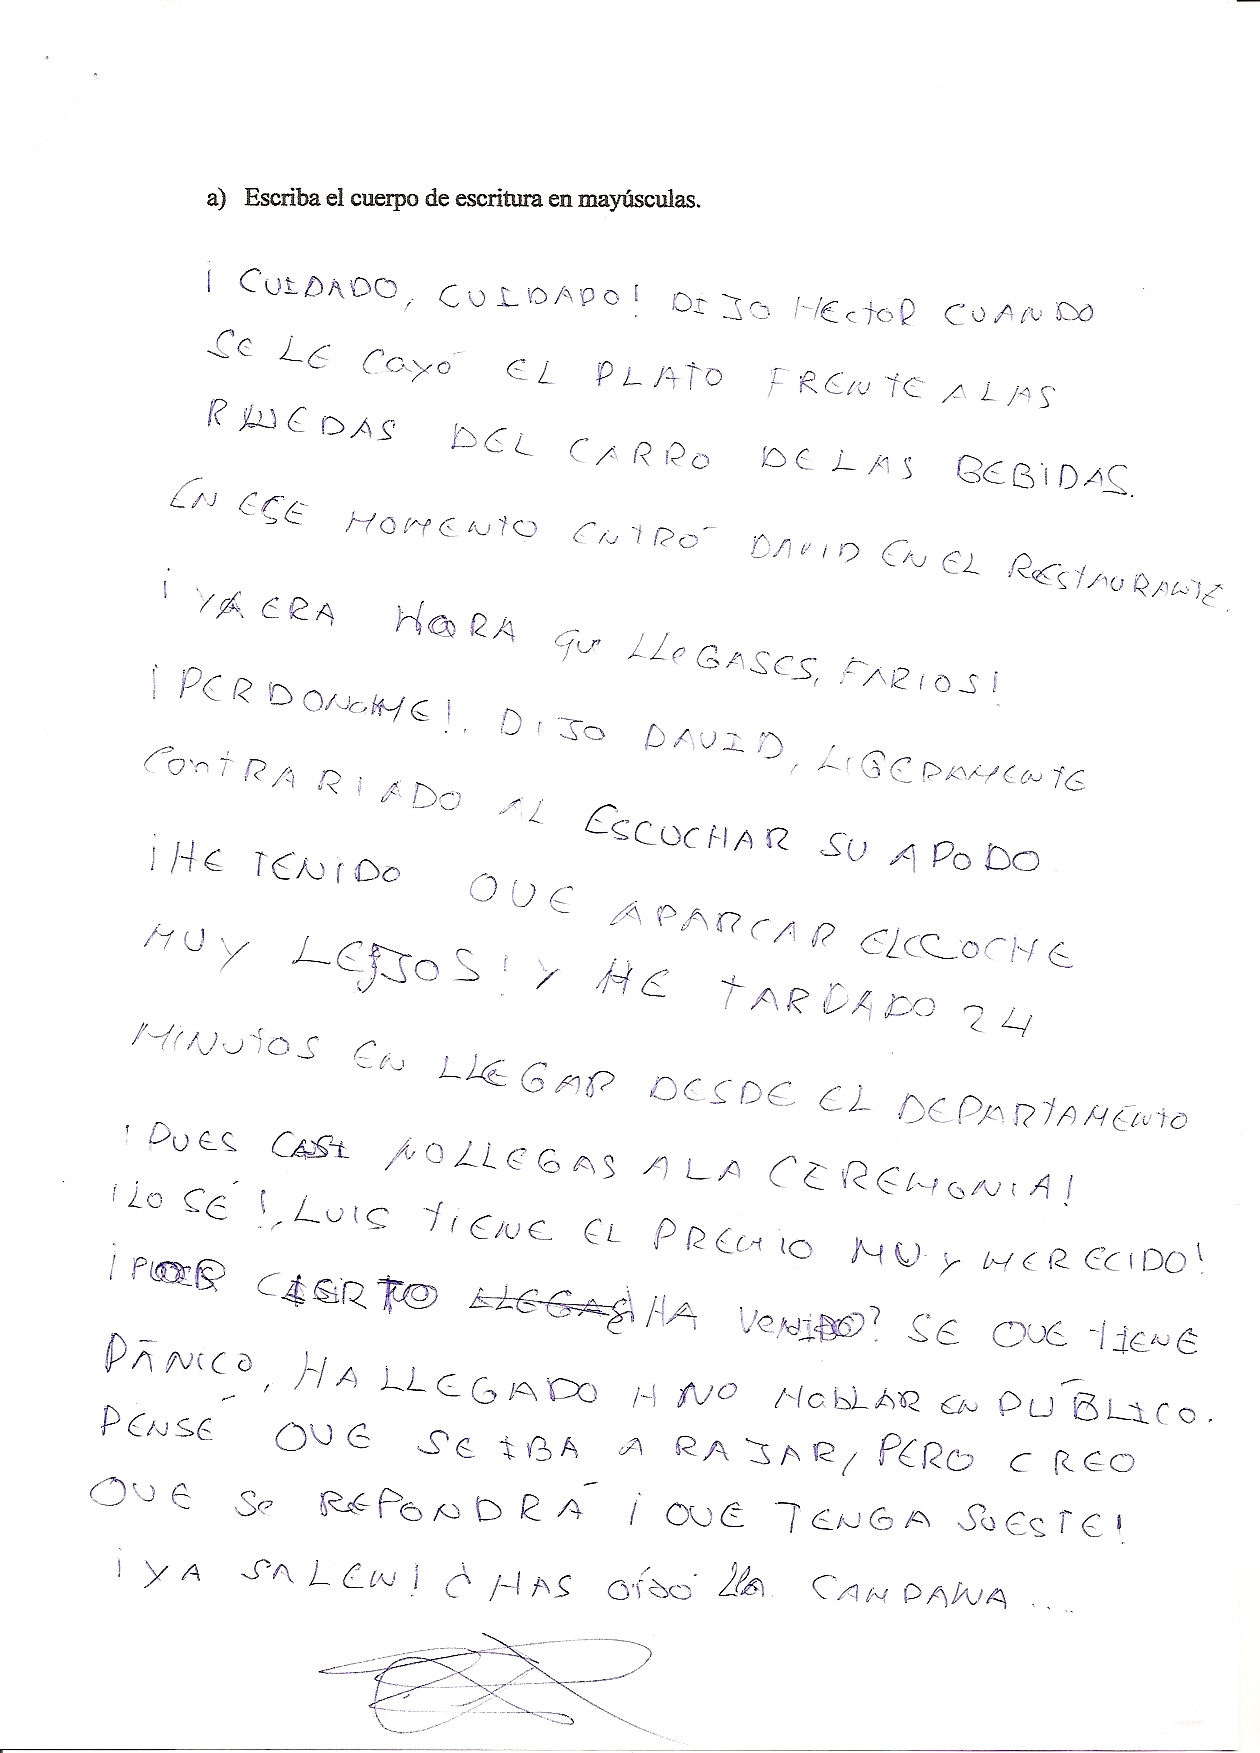 a) Escriba el cuerpo de escritura en mayúsculas.
¡ CUIDADO, CUIDADO! DIJO HEctoR CUANDO
SE LE CAYÓ EL PLATO FRENTE A LAS
RUEDAS DEL CARRO DE LAS BEBIDAS.
EN ESE MOMENTO ENTRÓ DAVID EN EL RESTAURANTE.
¡ YA ERA HORA QU LLeGASES, FARIOS!
¡ PERDONEME!. DIJO DAVID, LIGERAMENTE
CONTRARIADO AL ESCUCHAR SU APODO
¡HE TENIDO QUE APARCAR EL COCHE
MUY LEJOS! Y HE TARDADO 24
MINUTOS EN LLEGAR DESDE EL DEPARTAMENTO
¡ PUES CASI NO LLEGAS A LA CEREMONIA!
¡LO SÉ!, LUIS TIENE EL PREMIO MUY MERECIDO!
¡ POR CIERTO HA VENIDO? SE QUE TIENE
PÁNICO, HA LLEGADO A NO HABLAR EN PÚBLICO.
PENSÉ QUE SE IBA A RAJAR, PERO CREO
QUE Se REPONDRÁ ¡ QUE TENGA SUESTE!
¡ YA SALEN! ¿ HAS OÍDO LA CAMPANA ....